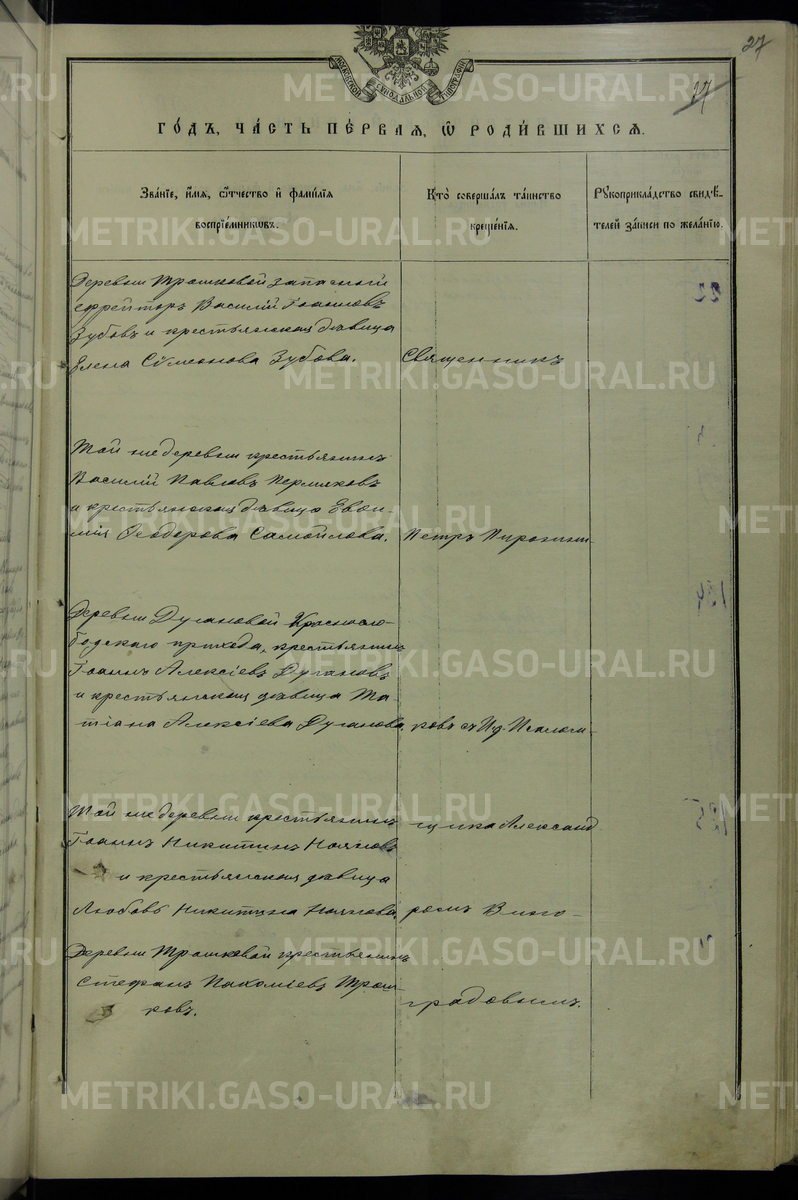 27
17
МОСКОВСКОЙ СѴНОДАЛЬНОЙ ТИПОГРАФІИ
ГО́ДЪ, ЧА́СТЬ ПЕ́РВАЯ, Ѿ РОДИ́ВШИХСЯ.
Зва́нїе, и҆́мя, ѻ҆́тчество и҆ фами́лїѧ
воспрїе́мниковъ.
Кто̀ соверша́лъ та́инство
креще́нїѧ.
Рꙋкоприкла́дство свидѣ́-
телей за́писи по жела́нїю.
Деревни Трошковой запасный
ефрейторъ Василій Іоанновъ
Зубовъ и крестьянская дѣвица
Елена Сѵмеонова Зубова.
Священникъ
Той же деревни крестьянинъ
Василій Павловъ Пермяковъ
и крестьянская дѣвица Евѳи-
мія Ѳеодорова Самойлова.
Петръ Пирожни-
Деревни Дугановой Краснослo-
бодскаго прихода, крестьянинъ
Іоаннъ Алексіевъ Дугановъ
и крестьянская дѣвица Та-
тіана Алексіева Дуганова
ковъ съ И.д. Псалом-
Той же деревни крестьянинъ
Іоаннъ Никитинъ
и крестьянская дѣвица
Любовь Никитина
щика Александ
ромъ Вино-
Деревни Трошковой крестьянинъ
Стефанъ Пахоміевъ Трош-
ковъ.
градовымъ.
METRIKI.GASO-URAL.RU